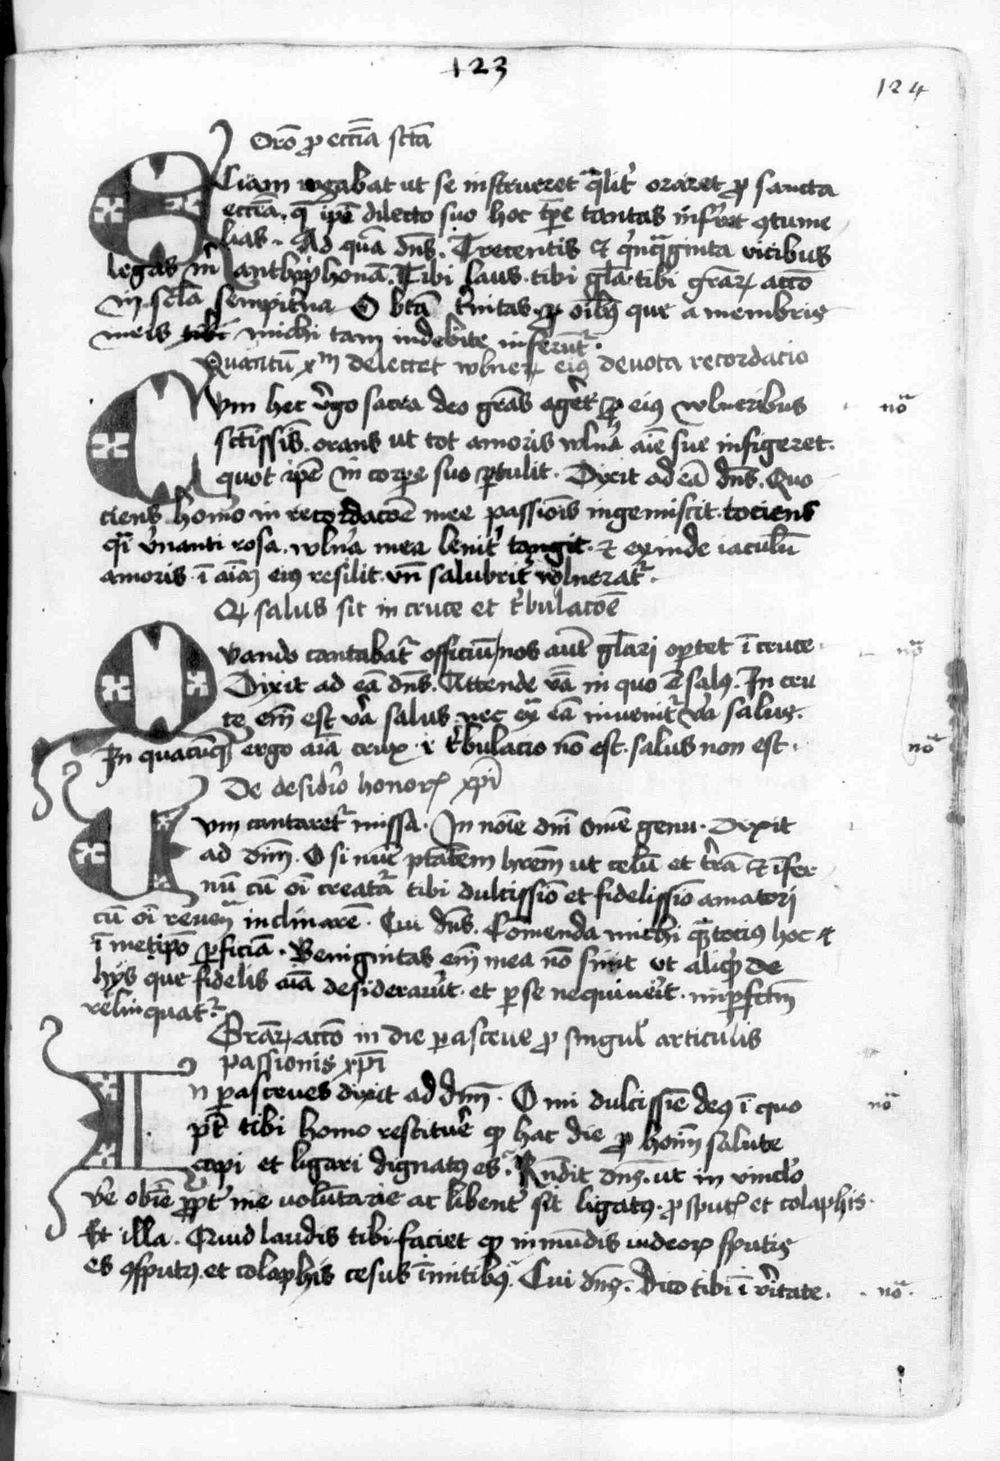 123
124
Oro᷒ p̱ eccl̄ia sct̄a
Eciam rogabat ut se instrueret q̄lit᷑ oraret p̱ sancta
eccl̄ia. q̄ ip̄e dilecto suo hoc tp̄e tantas inferret ꝯtume
lias. Ad quā dn̄s. Trecentis & q̄nq̄ginta vicibus
legas m̄ anthiphonā. Tibi laus. tibi gl̄a. tibi gr̄aꝝ acc̄o
in sc̄la sempit᷑na O bt̄a t᷑nitas. ꝓ oīb᷒ que a membris
meis tibi michi tam indebite inferūt᷑.
Quantū xp̄m delectet wlneꝝ ei᷒ devota recordacio
Cum hec v᷑go sacra deo gr̄as ageret ꝓ eius wlneribus
nō
sct̄issis. orans ut tot amoris wln᷑a aīe sue infigeret.
quot ip̄e in corpe suo ꝑtulit. Dixit ad eā dn̄s. Quo
ciens homo in recordacōe mee passiois ingemiscit. tociens
q̄i v᷑nanti rosa. wln᷑a mea lenit᷑ tangit. & exinde iaculū
amoris ī aīaꝫ ei᷒ resilit. vn̄ salubrit᷑ wlnerat᷑.
Ꝙ salus sit in cruce et t᷑bulacōe
Quando cantabat᷑ officiū/nos aut̄ gl̄ari oꝑtet ī cruce.
nō
Dixit ad eā dn̄s. Attende vā in quo ē sal᷒. In cru
ce em̄ est v᷑a salus. nec ext᷑ eā invenit᷑ v᷑a salus.
In quacūq̄ ergo aīa crux. & t᷑bulacio nō est. salus non est.
nō
De desid᷑io honoꝝ xp̄i
Cum cantaret᷑ missa. In noīe dn̄i om̄e genu. Dixit
ad dn̄m. O si nūc ptātem hrēm ut celū et t᷑rā & īfer
nū cū oī creatᷓa tibi dulcissio et fidelissio amatori
cū oī reuen̄a inclinarē. Cui dn̄s. Comenda michi q̄ toci᷒ hoc &
ī metip̄o ꝑficiā. Benignitas em̄ mea nō sinit ut aliq᷑d de
hys que fidelis aīa desiderav᷑it. et ꝑ se nequiu᷑it. imꝑfct̄m
relinquat᷑.
Gr̄aꝝ acc̄o in die ꝑasceue ꝓ singul᷒ articulis
passionis xp̄i
In ꝑasceues dixit ad dn̄m. O mi dulcissīe de᷒ ī quo
nō
pt̄ tibi homo restituē ꝙ hac die ꝓ hoīm salute
capi et ligari dignat᷒ es. Rn̄dit dn̄s. ut in vincl᷒o
v᷑e obīe ꝓpt᷑ me voluntarie ac libent᷑ sit ligat᷒. ꝓ sput᷒ et colaphis.
Et illa. Quid laudis tibi faciet ꝙ inmūdis iudeoꝝ sputis
es ꝯsput᷒. et colaphis cesus īmitib᷒. Cui dn̄s. Dico tibi ī v᷑itate.
nō